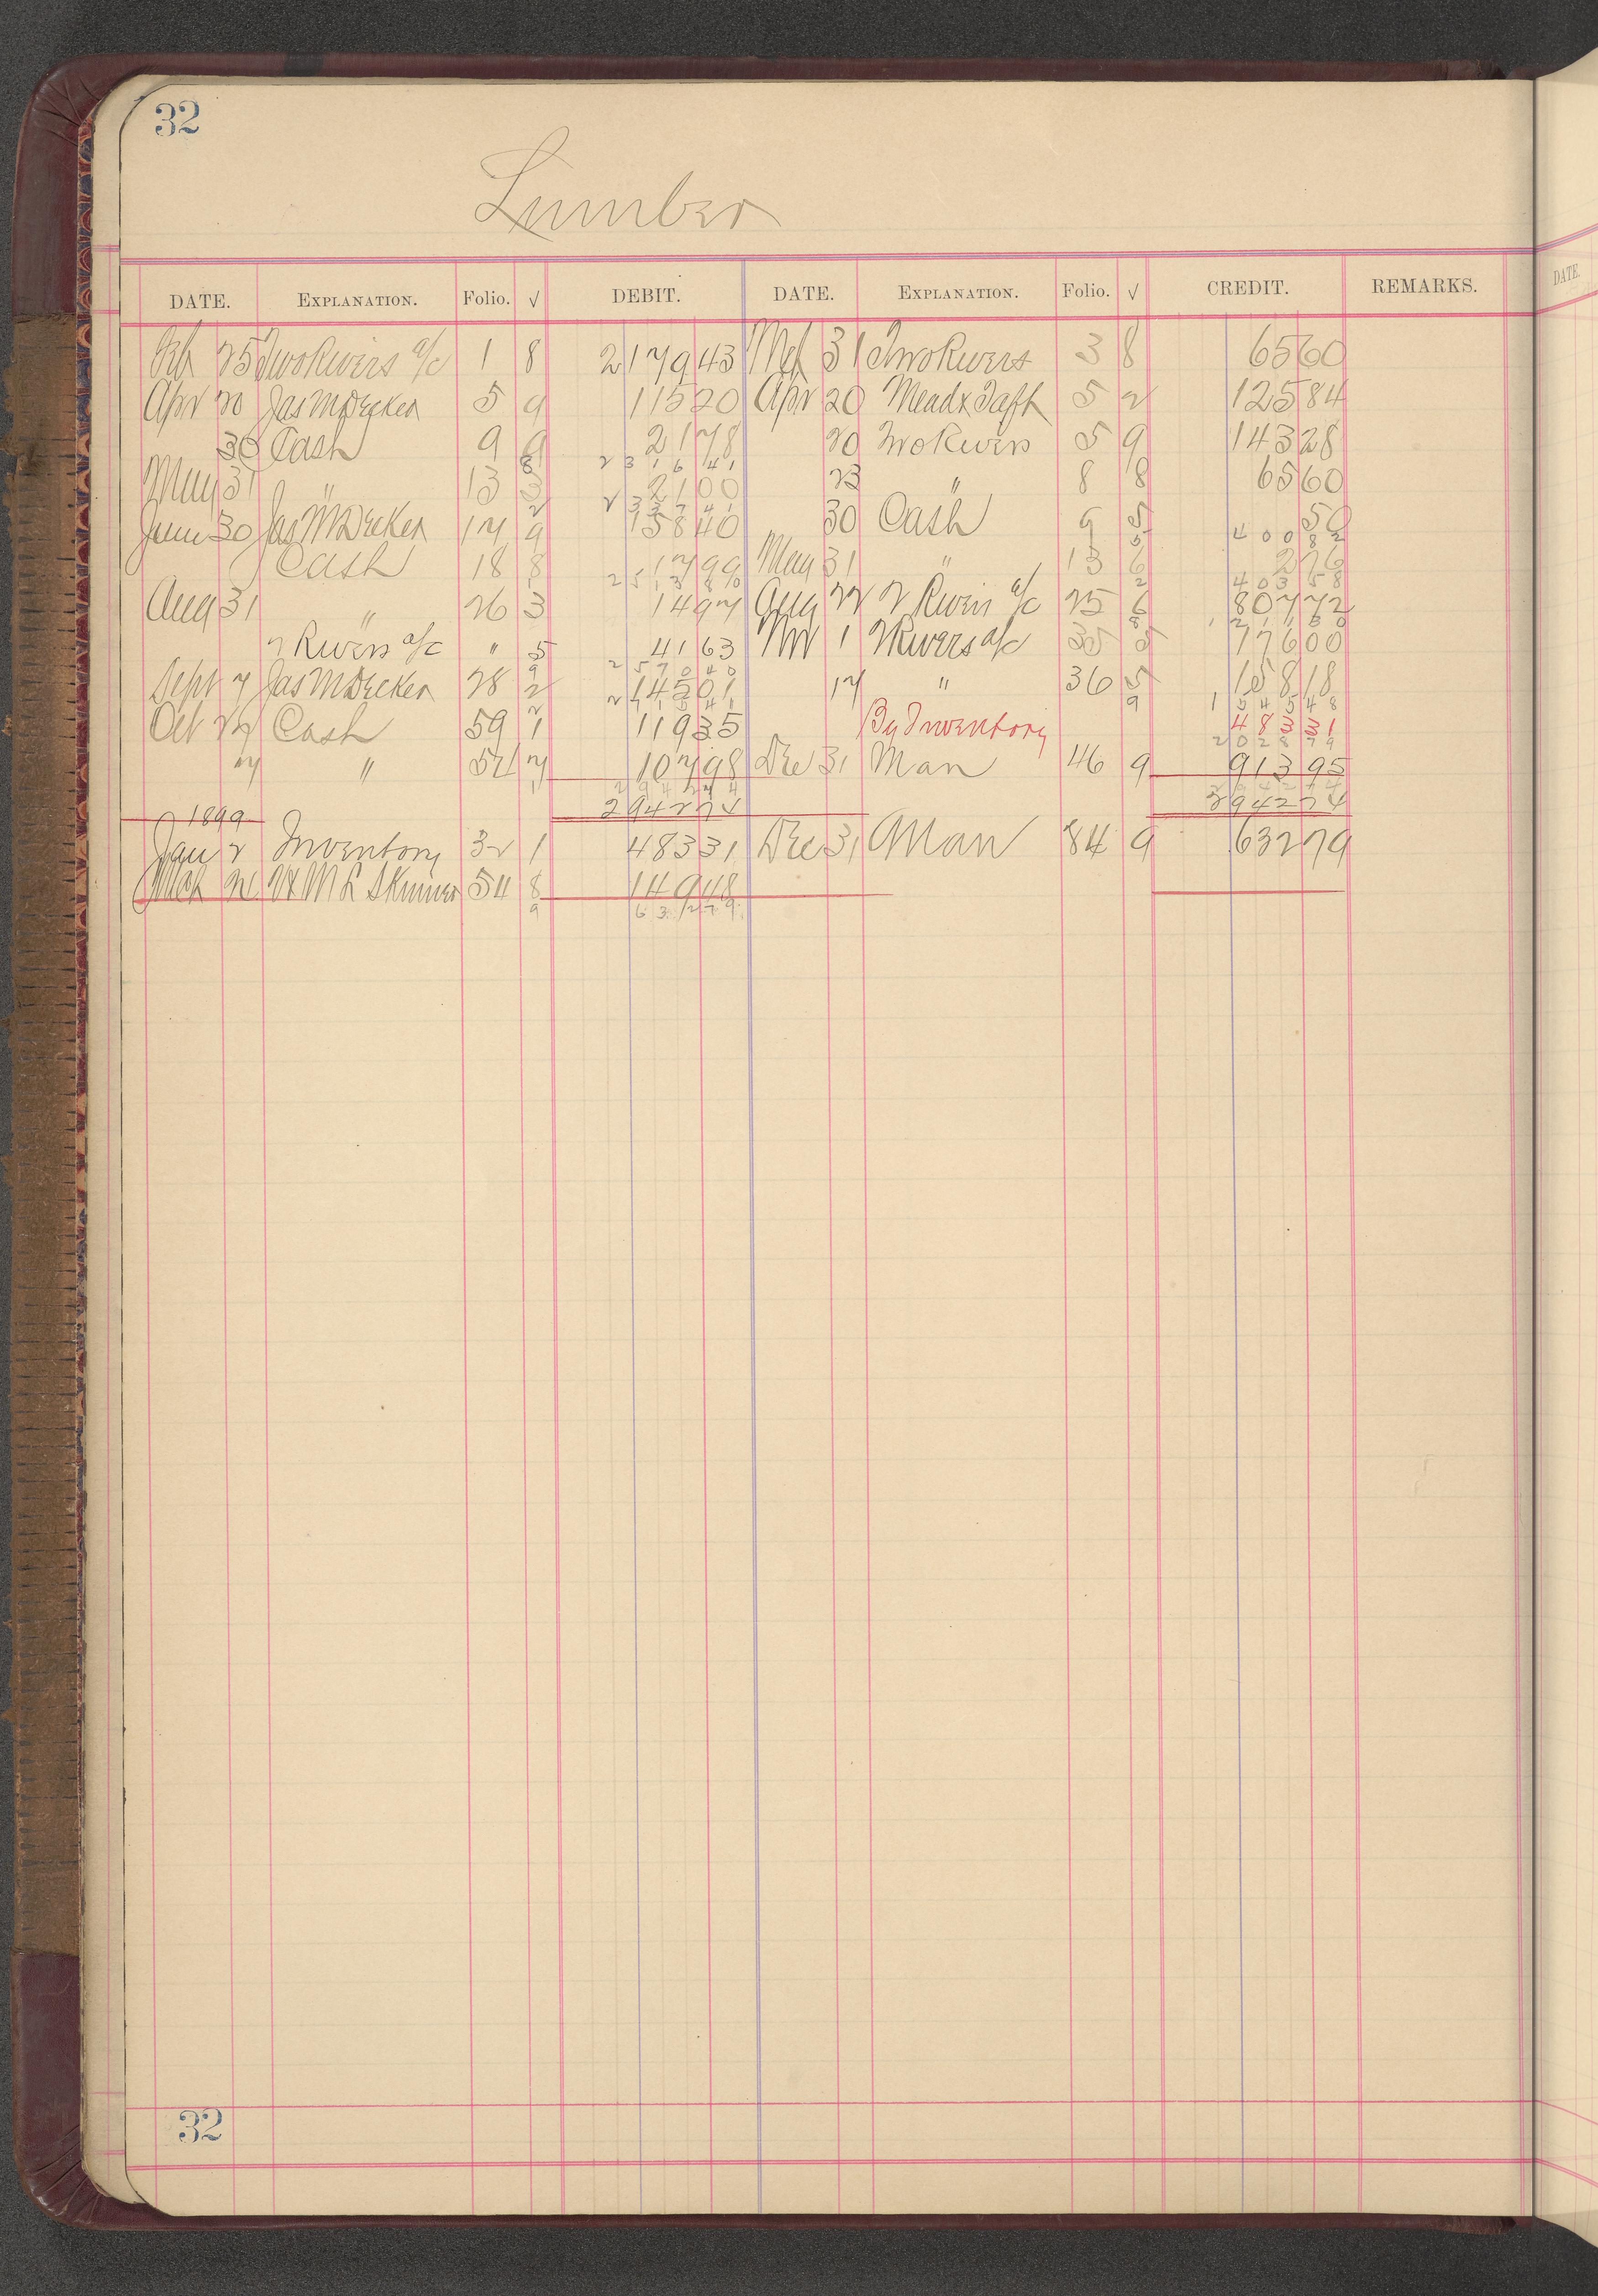 32
Lumber
DATE. EXPLANATION. Folio. √ DEBIT. DATE. EXPLANATION. Folio. √ CREDIT. REMARKS. DATE.
Feb 25 Two Rivers a/c 1 8 2179 43 Mch 31 Two Rivers 3 8 65 60
Apr 20 Jas M Decker 5 9 115 20 Apr 20 Mead & Taft 5 2 125 84
30 Cash 9 9 21 78 20 Two Rivers 5 9 143 28
8 2316 41
May 31 " 13 3 21 00 23 " 8 8 65 60
2 2337 41
June 30 Jas M Decker 17 9 158 40 30 Cash 9 5 50
400 82
Cash 18 8 17 99 May 31 " 13 6 2 76
2513 80 2 403 58
Aug 31 " 26 3 14 97 Aug 22 2 Rivers a/c 25 6 807 72
1211 30
2 Rivers a/c " 5 41 63 Nov 1 2 Rivers a/c 35 5 176 00
9 2570 40
Sept 7 Jas M Decker 28 2 145 01 17 " 36 5 158 18
2 2715 41 9 1545 48
Oct 27 Cash 59 1 119 35 By Inventory 483 31
2028 79
" 7 107 98 Dec 31 Man 46 9 913 95
2942 74 2942 74
1899
Jan 2 Inventory 32 1 483 31 Dec 31 Man 84 9 632 79
Mch W M L Skinner 54 8 149 48
9 632 79
32